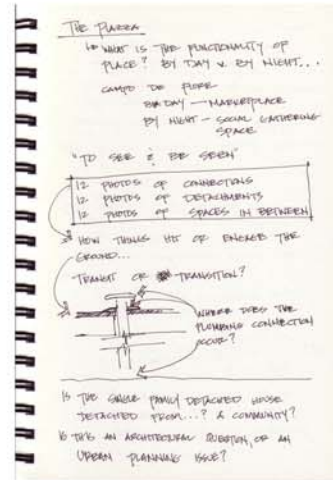 THE PIAZZA
WHAT IS THE FUNCTIONALITY OF
PLACE? BY DAY v. BY NIGHT...
CAMPO DE FIORE
BY DAY — MARKETPLACE
BY NIGHT — SOCIAL GATHERING
SPACE
"TO SEE & BE SEEN"
12 PHOTOS OF CONNECTIONS
12 PHOTOS OF DETACHMENTS
12 PHOTOS OF SPACES IN BETWEEN
HOW THINGS HIT OR ENGAGE THE
GROUND...
TRANSIT OR TRANSITION?
WHERE DOES THE
PLUMBING CONNECTION
OCCUR?
IS THE SINGLE FAMILY DETACHED HOUSE
DETACHED FROM...? A COMMUNITY?
IS THIS AN ARCHITECTURAL QUESTION, OR AN
URBAN PLANNING ISSUE?